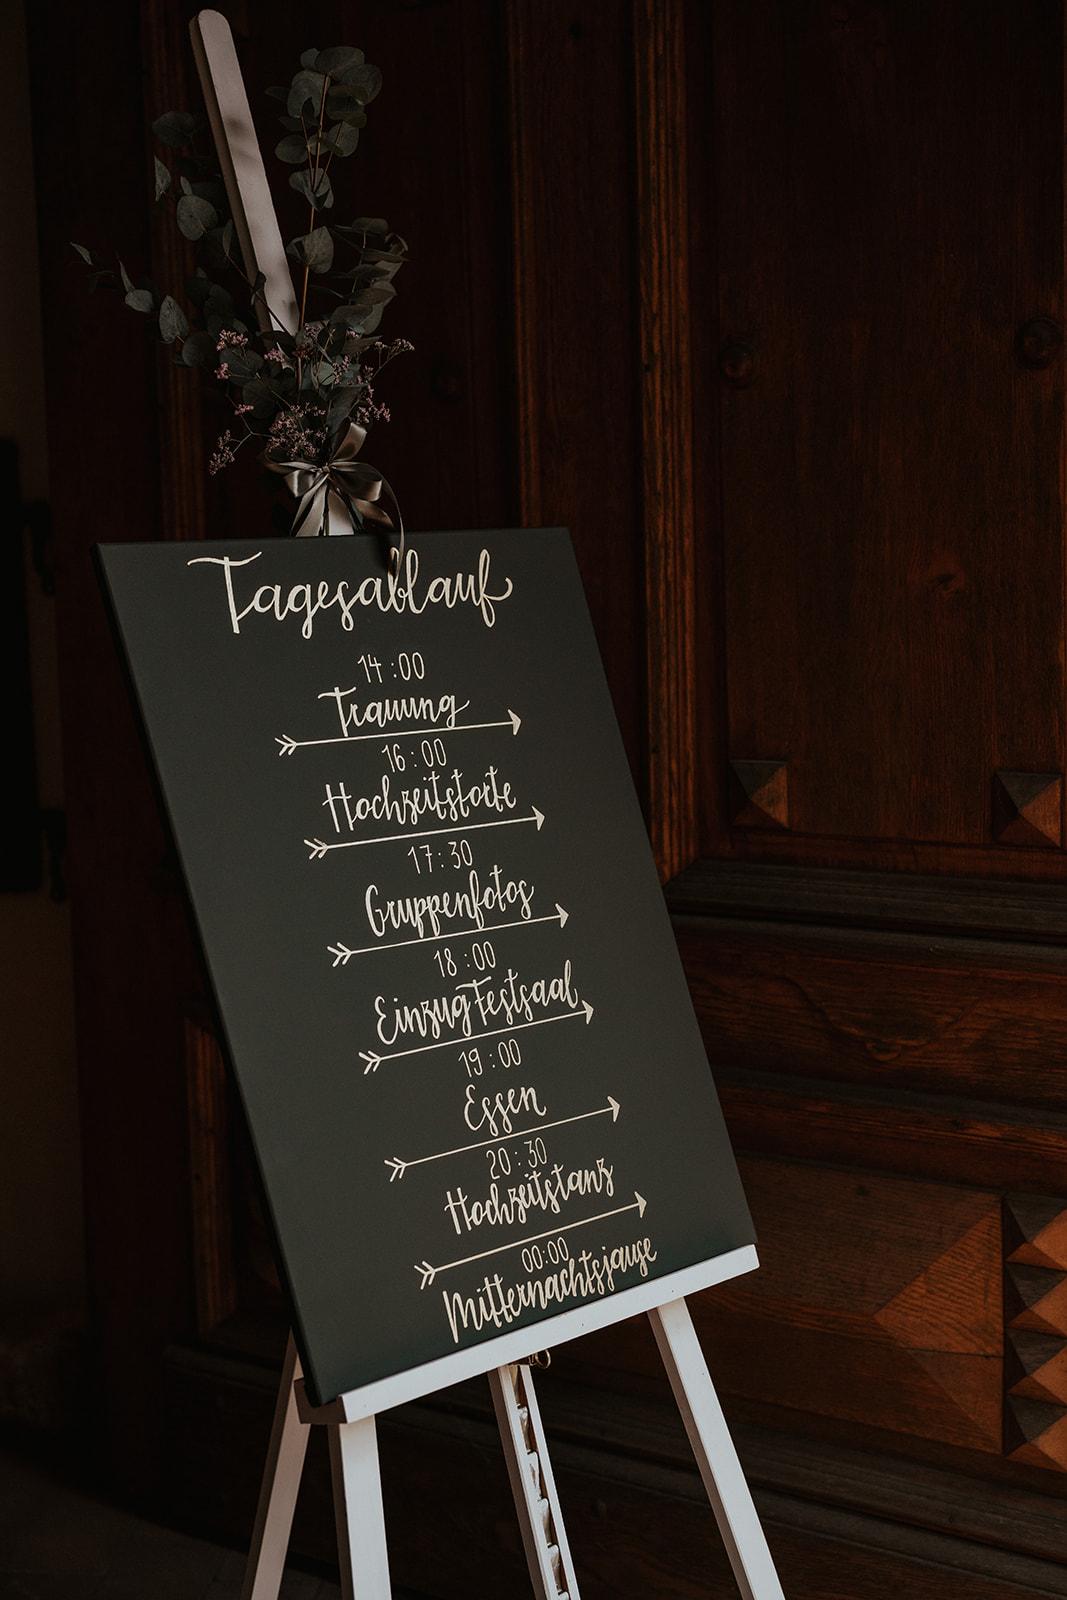 Tagesablauf
14:00
Trauung
16:00
Hochzeitstorte
17:30
Gruppenfotos
18:00
Einzug Festsaal
19:00
Essen
20:30
Hochzeitstanz
00:00
Mitternachtsjause